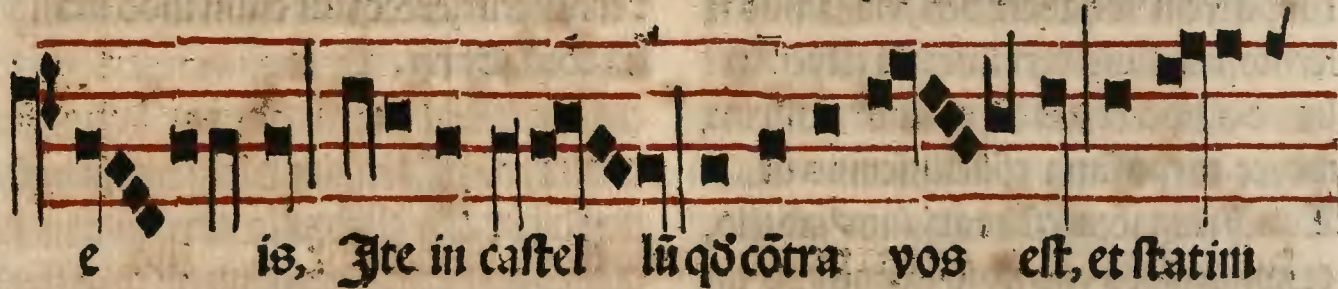 e is, Ite in castel lū qđ cōtra vos est, et statim